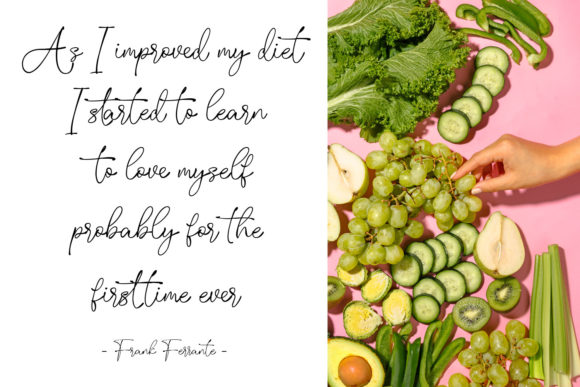 As I improved my diet
I started to learn
to love myself
probably for the
first time ever
- Frank Ferrante -